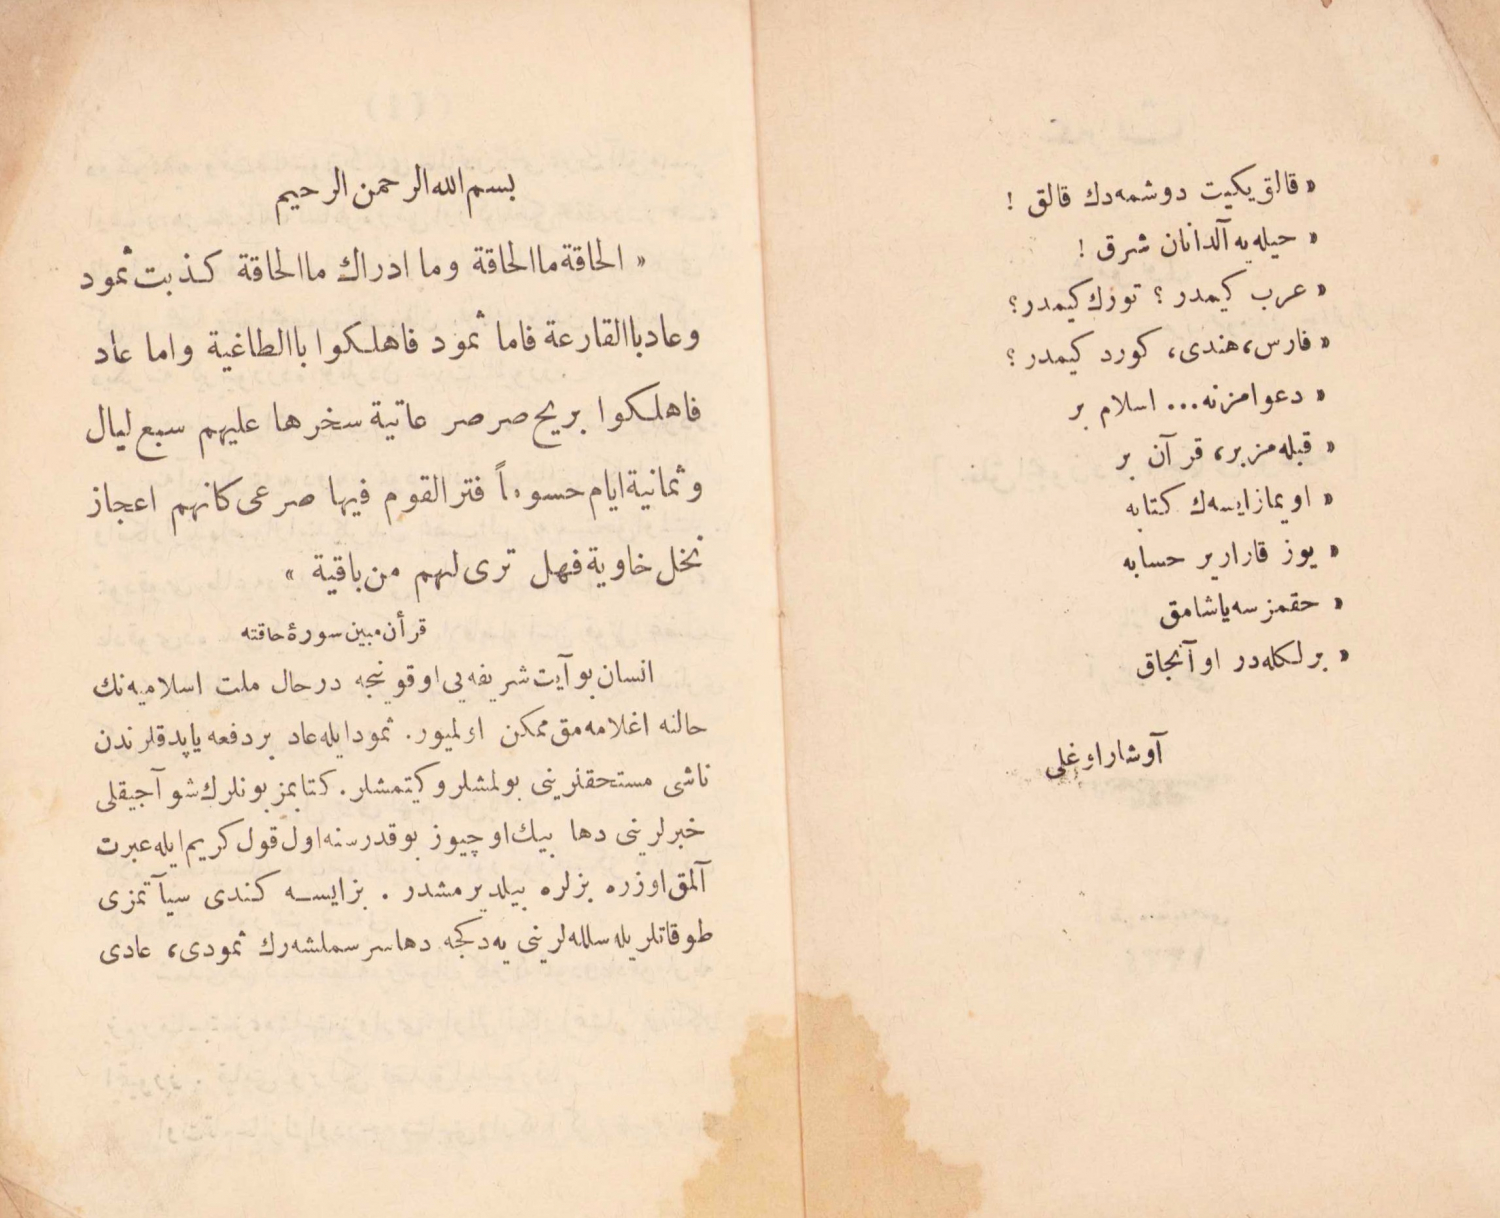 « قالق یکیت دوشمه‌دك قالق !
« حیله‌یه آلدانان شرق !
« عرب کیمدر ؟ تورك کیمدر؟
« فارس، هندی، كورد کیمدر ؟
« دعوامز نه... اسلام بر
« قبله‌مز بر، قرآن بر
« اویماز ایسه‌ك كتابه
« یوز قارار یر حسابه
« حقمز سه یاشامق
« برلكله‌در او آنجاق
آوشار اوغلی
بسم الله الرحمن الرحیم
« الحاقة ماالحاقة وما ادراك ماالحاقة كذبت ثمود
وعاد باالقارعة فاما ثمود فاهلكوا باالطاغية واما عاد
فاهلكوا بريح صرصر عاتية سخرها عليهم سبع ليال
وثمانية ايام حسوءاً فترالقوم فيها صرعى كانهم اعجاز
نخل خاوية فهل ترى لهم من باقية »
قرأن مبین سورهٔ حاقته
انسان بو آیت شریفه‌یی اوقونجه درحال ملت اسلامیه‌نك
حالنه اغلامه‌مق ممكن اولمیور. ثمود ایله عاد بر دفعه یاپدقلرندن
ناشی مستحقلرینی بولمشلر و كیتمشلر. كتابمز بونلرك شو آجیقلی
خبرلرینی دها بیك اوچیوز بوقدر سنه اول قول كریم ایله عبرت
آلمق اوزره بزلره بیلدیرمشدر . بز ایسه كندی سیآتمزی
طوقاتلریله سلله‌لرینی یه‌دكجه دها سرسملشه‌رك ثمودی، عادی